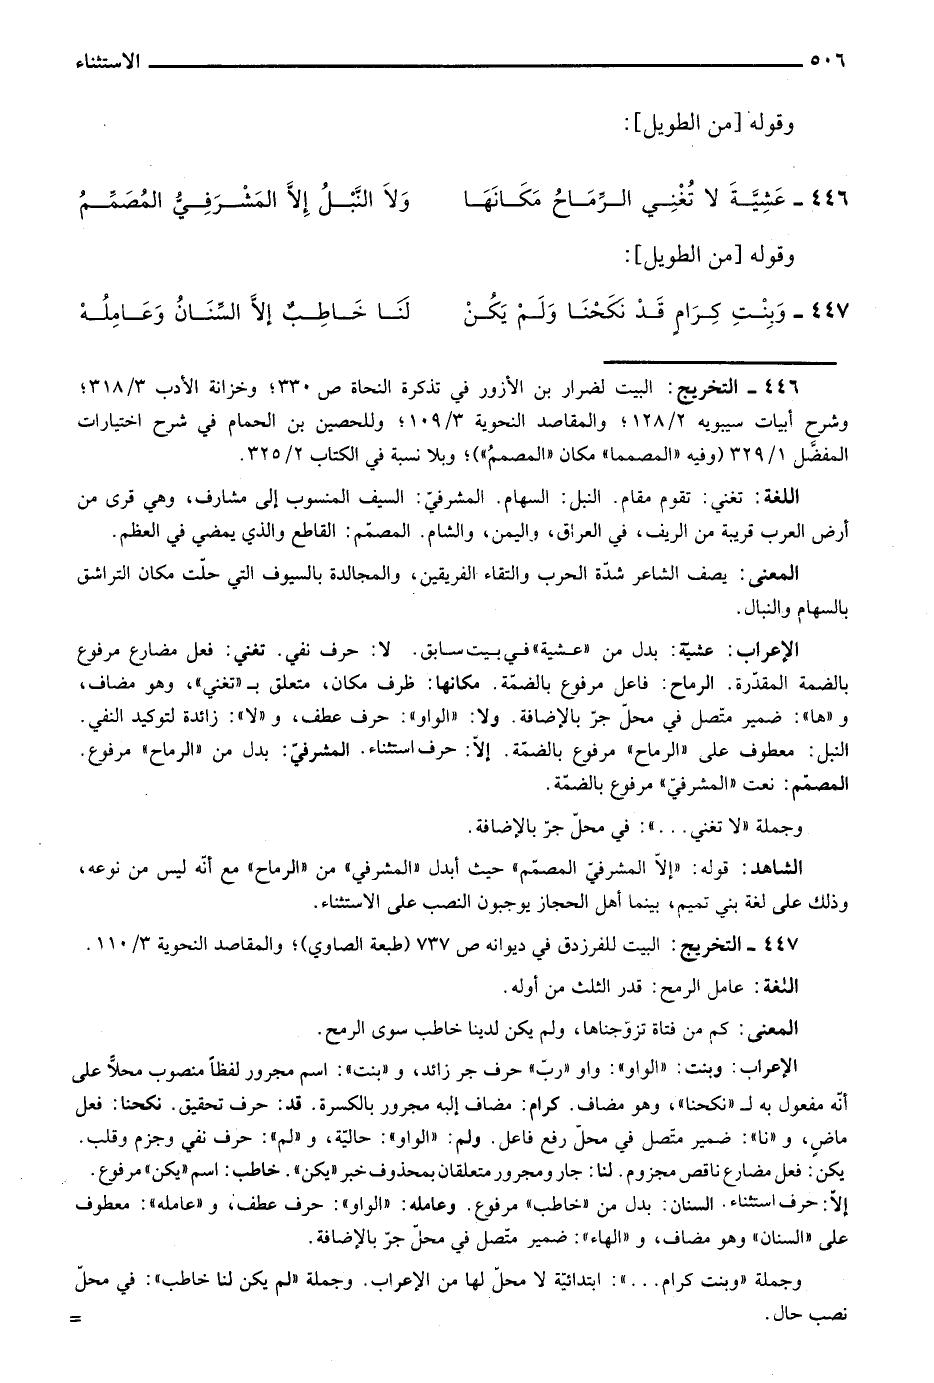 ٥٠٦ الاستثناء
وقوله [من الطويل]:
٤٤٦ ـ عَشِيَّـةَ لا تُغْنِـي الـرِّمَـاحُ مَكَـانَهَـا وَلاَ النَّبْـلُ إلاَّ المَشْـرَفِـيُّ المُصَمِّـمُ
وقوله [من الطويل]:
٤٤٧ ـ وَبِنْـتِ كِـرَامٍ قَـدْ نَكَحْنَـا وَلَـمْ يَكُـنْ لَنَـا خَـاطِـبٌ إلاَّ السِّنَـانُ وَعَـامِلُـهْ
٤٤٦ ـ التخريج: البيت لضرار بن الأزور في تذكرة النحاة ص ٣٣٠؛ وخزانة الأدب ٣١٨/٣؛
وشرح أبيات سيبويه ١٢٨/٢؛ والمقاصد النحوية ١٠٩/٣؛ وللحصين بن الحمام في شرح اختيارات
المفضّل ٣٢٩/١ (وفيه «المصمما» مكان «المصممُ»)؛ وبلا نسبة في الكتاب ٣٢٥/٢.
اللغة: تغني: تقوم مقام. النبل: السهام. المشرفيّ: السيف المنسوب إلى مشارف، وهي قرى من
أرض العرب قريبة من الريف، في العراق، واليمن، والشام. المصمّم: القاطع والذي يمضي في العظم.
المعنى: يصف الشاعر شدّة الحرب والتقاء الفريقين، والمجالدة بالسيوف التي حلّت مكان التراشق
بالسهام والنبال.
الإعراب: عشيّة: بدل من «عشية» في بيت سابق. لا: حرف نفي. تغني: فعل مضارع مرفوع
بالضمة المقدّرة. الرماح: فاعل مرفوع بالضمّة. مكانها: ظرف مكان، متعلق بـ «تغني»، وهو مضاف،
و «ها»: ضمير متّصل في محلّ جرّ بالإضافة. ولا: «الواو»: حرف عطف، و «لا»: زائدة لتوكيد النفي.
النبل: معطوف على «الرماح» مرفوع بالضمّة. إلاّ: حرف استثناء. المشرفيّ: بدل من «الرماح» مرفوع.
المصمّم: نعت «المشرفيّ» مرفوع بالضمّة.
وجملة «لا تغني...»: في محلّ جرّ بالإضافة.
الشاهد: قوله: «إلاّ المشرفيّ المصمّم» حيث أبدل «المشرفي» من «الرماح» مع أنّه ليس من نوعه،
وذلك على لغة بني تميم، بينما أهل الحجاز يوجبون النصب على الاستثناء.
٤٤٧ ـ التخريج: البيت للفرزدق في ديوانه ص ٧٣٧ (طبعة الصاوي)؛ والمقاصد النحوية ١١٠/٣.
اللغة: عامل الرمح: قدر الثلث من أوله.
المعنى: كم من فتاة تزوّجناها، ولم يكن لدينا خاطب سوى الرمح.
الإعراب: وبنت: «الواو»: واو «ربّ» حرف جر زائد، و «بنت»: اسم مجرور لفظاً منصوب محلاًّ على
أنّه مفعول به لـ «نكحنا»، وهو مضاف. كرام: مضاف إليه مجرور بالكسرة. قد: حرف تحقيق. نكحنا: فعل
ماضٍ، و «نا»: ضمير متّصل في محلّ رفع فاعل. ولم: «الواو»: حاليّة، و «لم»: حرف نفي وجزم وقلب.
يكن: فعل مضارع ناقص مجزوم. لنا: جار ومجرور متعلقان بمحذوف خبر «يكن». خاطب: اسم «يكن» مرفوع.
إلاّ: حرف استثناء. السنان: بدل من «خاطب» مرفوع. وعامله: «الواو»: حرف عطف، و «عامله»: معطوف
على «السنان» وهو مضاف، و «الهاء»: ضمير متّصل في محلّ جرّ بالإضافة.
وجملة «وبنت كرام...»: ابتدائيّة لا محلّ لها من الإعراب. وجملة «لم يكن لنا خاطب»: في محلّ
نصب حال. =